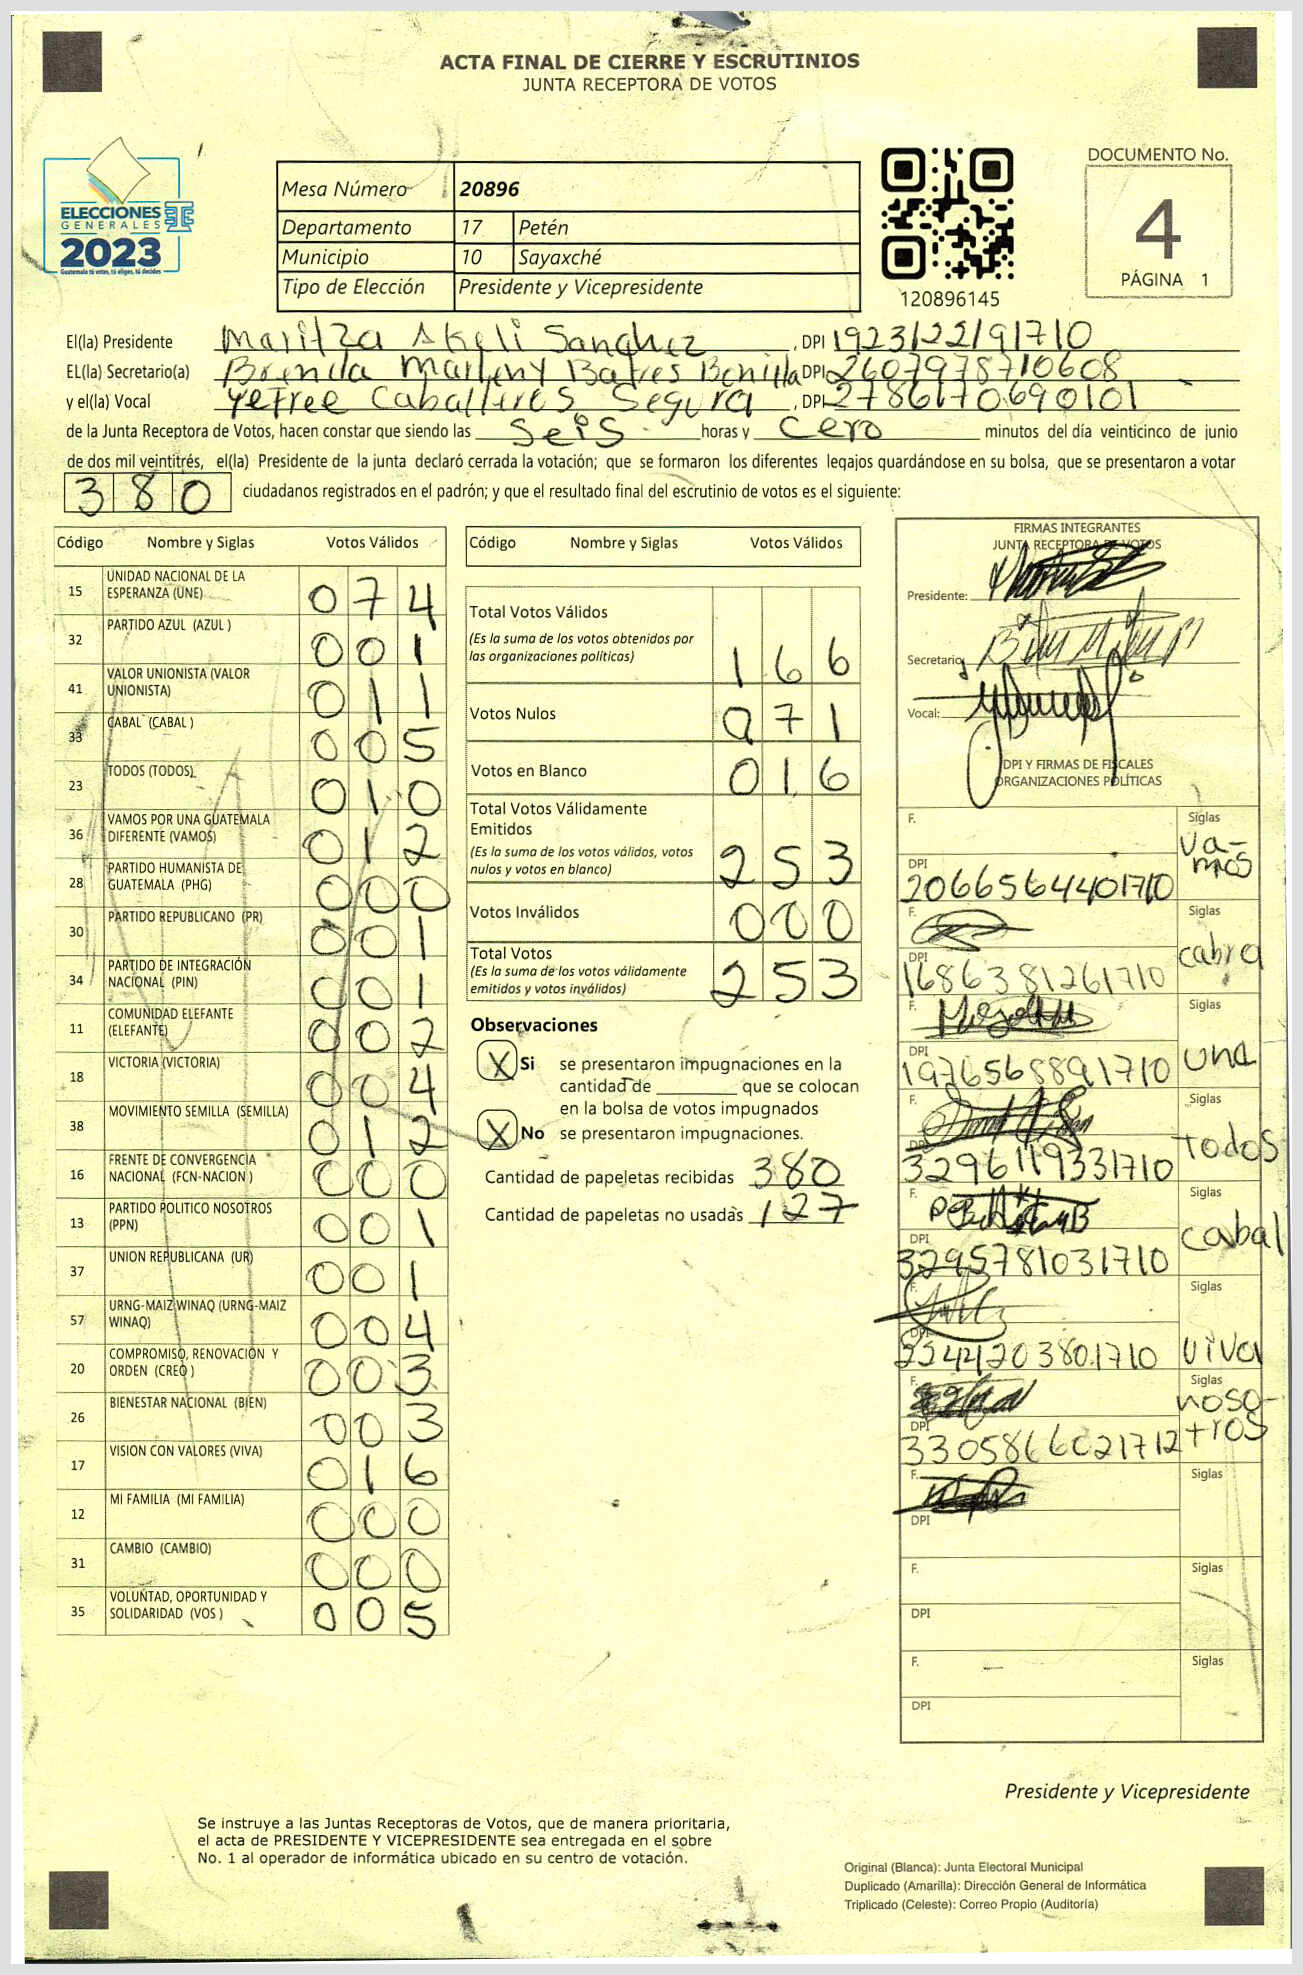 ACTA FINAL DE CIERRE Y ESCRUTINIOS
JUNTA RECEPTORA DE VOTOS
ELECCIONES
GENERALES
2023
Guatemala tú votes, tú eliges, tú decides
Mesa Número 20896
Departamento 17 Petén
Municipio 10 Sayaxché
Tipo de Elección Presidente y Vicepresidente
120896145
DOCUMENTO No.
4
PÁGINA 1
El(la) Presidente Maritza Akeli Sanchez, DPI 1923122191710
EL(la) Secretario(a) Brenda Marleny Batres Bonilla DPI 2607978710608
y el(la) Vocal Yefree Caballeros Segura, DPI 2786170690101
de la Junta Receptora de Votos, hacen constar que siendo las seis horas y cero minutos del día veinticinco de junio
de dos mil veintitrés, el(la) Presidente de la junta declaró cerrada la votación; que se formaron los diferentes legajos quardándose en su bolsa, que se presentaron a votar
380 ciudadanos registrados en el padrón; y que el resultado final del escrutinio de votos es el siguiente:
Código Nombre y Siglas Votos Válidos
15 UNIDAD NACIONAL DE LA ESPERANZA (UNE) 074
32 PARTIDO AZUL (AZUL ) 001
41 VALOR UNIONISTA (VALOR UNIONISTA) 011
33 CABAL (CABAL ) 005
23 TODOS (TODOS) 010
36 VAMOS POR UNA GUATEMALA DIFERENTE (VAMOS) 012
28 PARTIDO HUMANISTA DE GUATEMALA (PHG) 000
30 PARTIDO REPUBLICANO (PR) 001
34 PARTIDO DE INTEGRACIÓN NACIONAL (PIN) 001
11 COMUNIDAD ELEFANTE (ELEFANTE) 002
18 VICTORIA (VICTORIA) 004
38 MOVIMIENTO SEMILLA (SEMILLA) 012
16 FRENTE DE CONVERGENCIA NACIONAL (FCN-NACION ) 000
13 PARTIDO POLITICO NOSOTROS (PPN) 001
37 UNION REPUBLICANA (UR) 001
57 URNG-MAIZ WINAQ (URNG-MAIZ WINAQ) 004
20 COMPROMISO, RENOVACIÓN Y ORDEN (CREO ) 003
26 BIENESTAR NACIONAL (BIEN) 003
17 VISION CON VALORES (VIVA) 016
12 MI FAMILIA (MI FAMILIA) 000
31 CAMBIO (CAMBIO) 000
35 VOLUNTAD, OPORTUNIDAD Y SOLIDARIDAD (VOS ) 005
Código Nombre y Siglas Votos Válidos
Total Votos Válidos
(Es la suma de los votos obtenidos por
las organizaciones políticas) 166
Votos Nulos 071
Votos en Blanco 016
Total Votos Válidamente
Emitidos
(Es la suma de los votos válidos, votos
nulos y votos en blanco) 253
Votos Inválidos 000
Total Votos
(Es la suma de los votos válidamente
emitidos y votos inválidos) 253
Observaciones
X Si se presentaron impugnaciones en la
cantidad de ________ que se colocan
en la bolsa de votos impugnados
X No se presentaron impugnaciones.
Cantidad de papeletas recibidas 380
Cantidad de papeletas no usadas 127
FIRMAS INTEGRANTES
JUNTA RECEPTORA DE VOTOS
Presidente:
Secretario:
Vocal:
DPI Y FIRMAS DE FISCALES
ORGANIZACIONES POLÍTICAS
F. Siglas
Va-
mos
DPI
2066564401710
F. Siglas
cabra
DPI
1686381261710
F. Siglas
una
DPI
1976568891710
F. Siglas
Todos
DPI
3296119331710
F. Siglas
cabal
DPI
3295781031710
F. Siglas
viva
DPI
2244203801710
F. Siglas
noso-
tros
DPI
3305866021712
F. Siglas
DPI
F. Siglas
DPI
F. Siglas
DPI
Presidente y Vicepresidente
Se instruye a las Juntas Receptoras de Votos, que de manera prioritaria,
el acta de PRESIDENTE Y VICEPRESIDENTE sea entregada en el sobre
No. 1 al operador de informática ubicado en su centro de votación.
Original (Blanca): Junta Electoral Municipal
Duplicado (Amarilla): Dirección General de Informática
Triplicado (Celeste): Correo Propio (Auditoría)